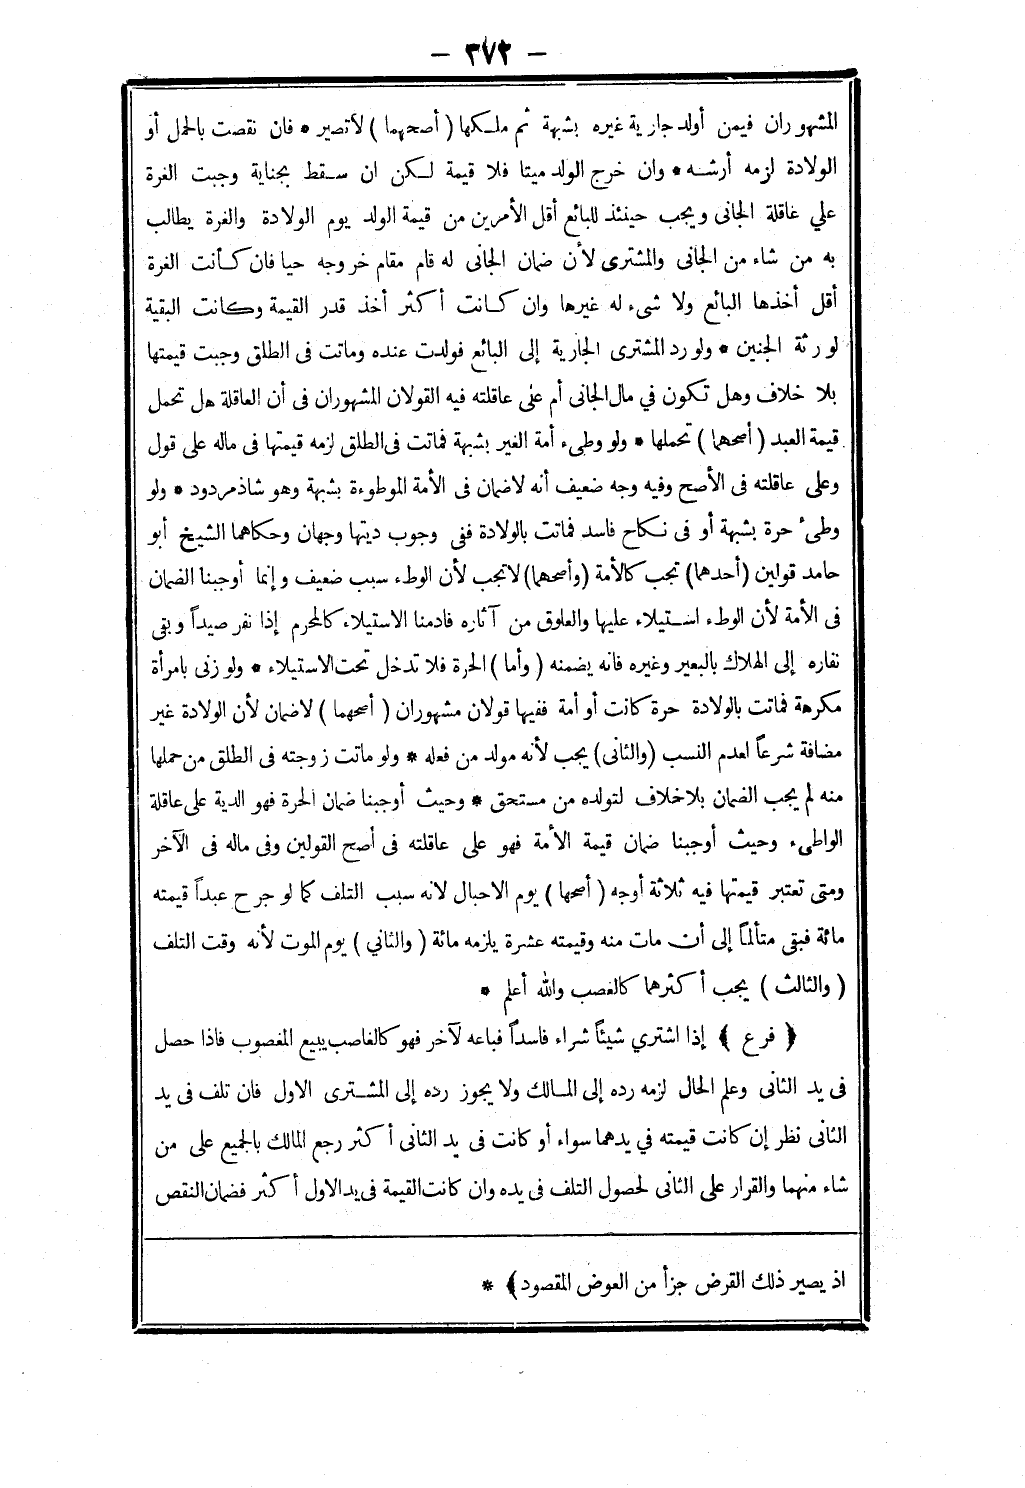 — ٣٧٢ —
المشهوران فيمن أولد جارية غيره بشبهة ثم ملكها ( أصحهما ) لا تصير * فان نقصت بالحمل أو
الولادة لزمه أرشه * وان خرج الولد ميتا فلا قيمة لكن ان سقط بجناية وجبت الغرة
علي عاقلة الجانى ويجب حينئذ للبائع أقل الأمرين من قيمة الولد يوم الولادة والغرة يطالب
به من شاء من الجانى والمشترى لأن ضمان الجانى له قام مقام خروجه حيا فان كأنت الغرة
أقل أخذها البائع ولا شىء له غيرها وان كانت أكثر أخذ قدر القيمة وكانت البقية
لورثة الجنين * ولو رد المشترى الجارية إلى البائع فولدت عنده وماتت فى الطلق وجبت قيمتها
بلا خلاف وهل تكون في مال الجانى أم على عاقلته فيه القولان المشهوران فى أن العاقلة هل تحمل
قيمة العبد ( أصحهما ) تحملها * ولو وطىء أمة الغير بشبهة فماتت فى الطلق لزمه قيمتها فى ماله على قول
وعلى عاقلته فى الأصح وفيه وجه ضعيف أنه لا ضمان فى الأمة الموطوءة بشبهة وهو شاذ مردود * ولو
وطىء حرة بشبهة أو فى نكاح فاسد فماتت بالولادة ففى وجوب ديتها وجهان وحكاهما الشيخ أبو
حامد قولين (أحدهما) تجب كالأمة (وأصحهما) لا تجب لأن الوطء سبب ضعيف وإنما أوجبنا الضمان
فى الأمة لأن الوطء استيلاء عليها والعلوق من آثاره فادمنا الاستيلاء كالمحرم إذا نفر صيداً وبقى
نفاره إلى الهلاك بالبعير وغيره فانه يضمنه ( وأما ) الحرة فلا تدخل تحت الاستيلاء * ولو زنى بامرأة
مكرهة فماتت بالولادة حرة كانت أو أمة ففيها قولان مشهوران ( أصحهما ) لاضمان لأن الولادة غير
مضافة شرعاً لعدم النسب (والثانى) يجب لأنه مولد من فعله * ولو ماتت زوجته فى الطلق من حملها
منه لم يجب الضمان بلا خلاف لتولده من مستحق * وحيث أوجبنا ضمان الحرة فهو الدية على عاقلة
الواطىء وحيث أوجبنا ضمان قيمة الأمة فهو على عاقلته فى أصح القولين وفى ماله فى الآخر
ومتى تعتبر قيمتها فيه ثلاثة أوجه ( أصحها ) يوم الاحبال لانه سبب التلف كما لو جرح عبداً قيمته
مائة فبقى متألماً إلى أن مات منه وقيمته عشرة يلزمه مائة ( والثاني ) يوم الموت لأنه وقت التلف
( والثالث ) يجب أكثرهما كالغصب والله أعلم *
﴿ فرع ﴾ إذا اشتري شيئاً شراء فاسداً فباعه لآخر فهو كالغاصب يبيع المغصوب فاذا حصل
فى يد الثانى وعلم الحال لزمه رده إلى المالك ولا يجوز رده إلى المشترى الاول فان تلف فى يد
الثانى نظر إن كانت قيمته في يدهما سواء أو كانت فى يد الثانى أكثر رجع المالك بالجميع على من
شاء منهما والقرار على الثانى لحصول التلف فى يده وان كانت القيمة فى يد الاول أكثر فضمان النقص
اذ يصير ذلك القرض جزأ من العوض المقصود﴾ *